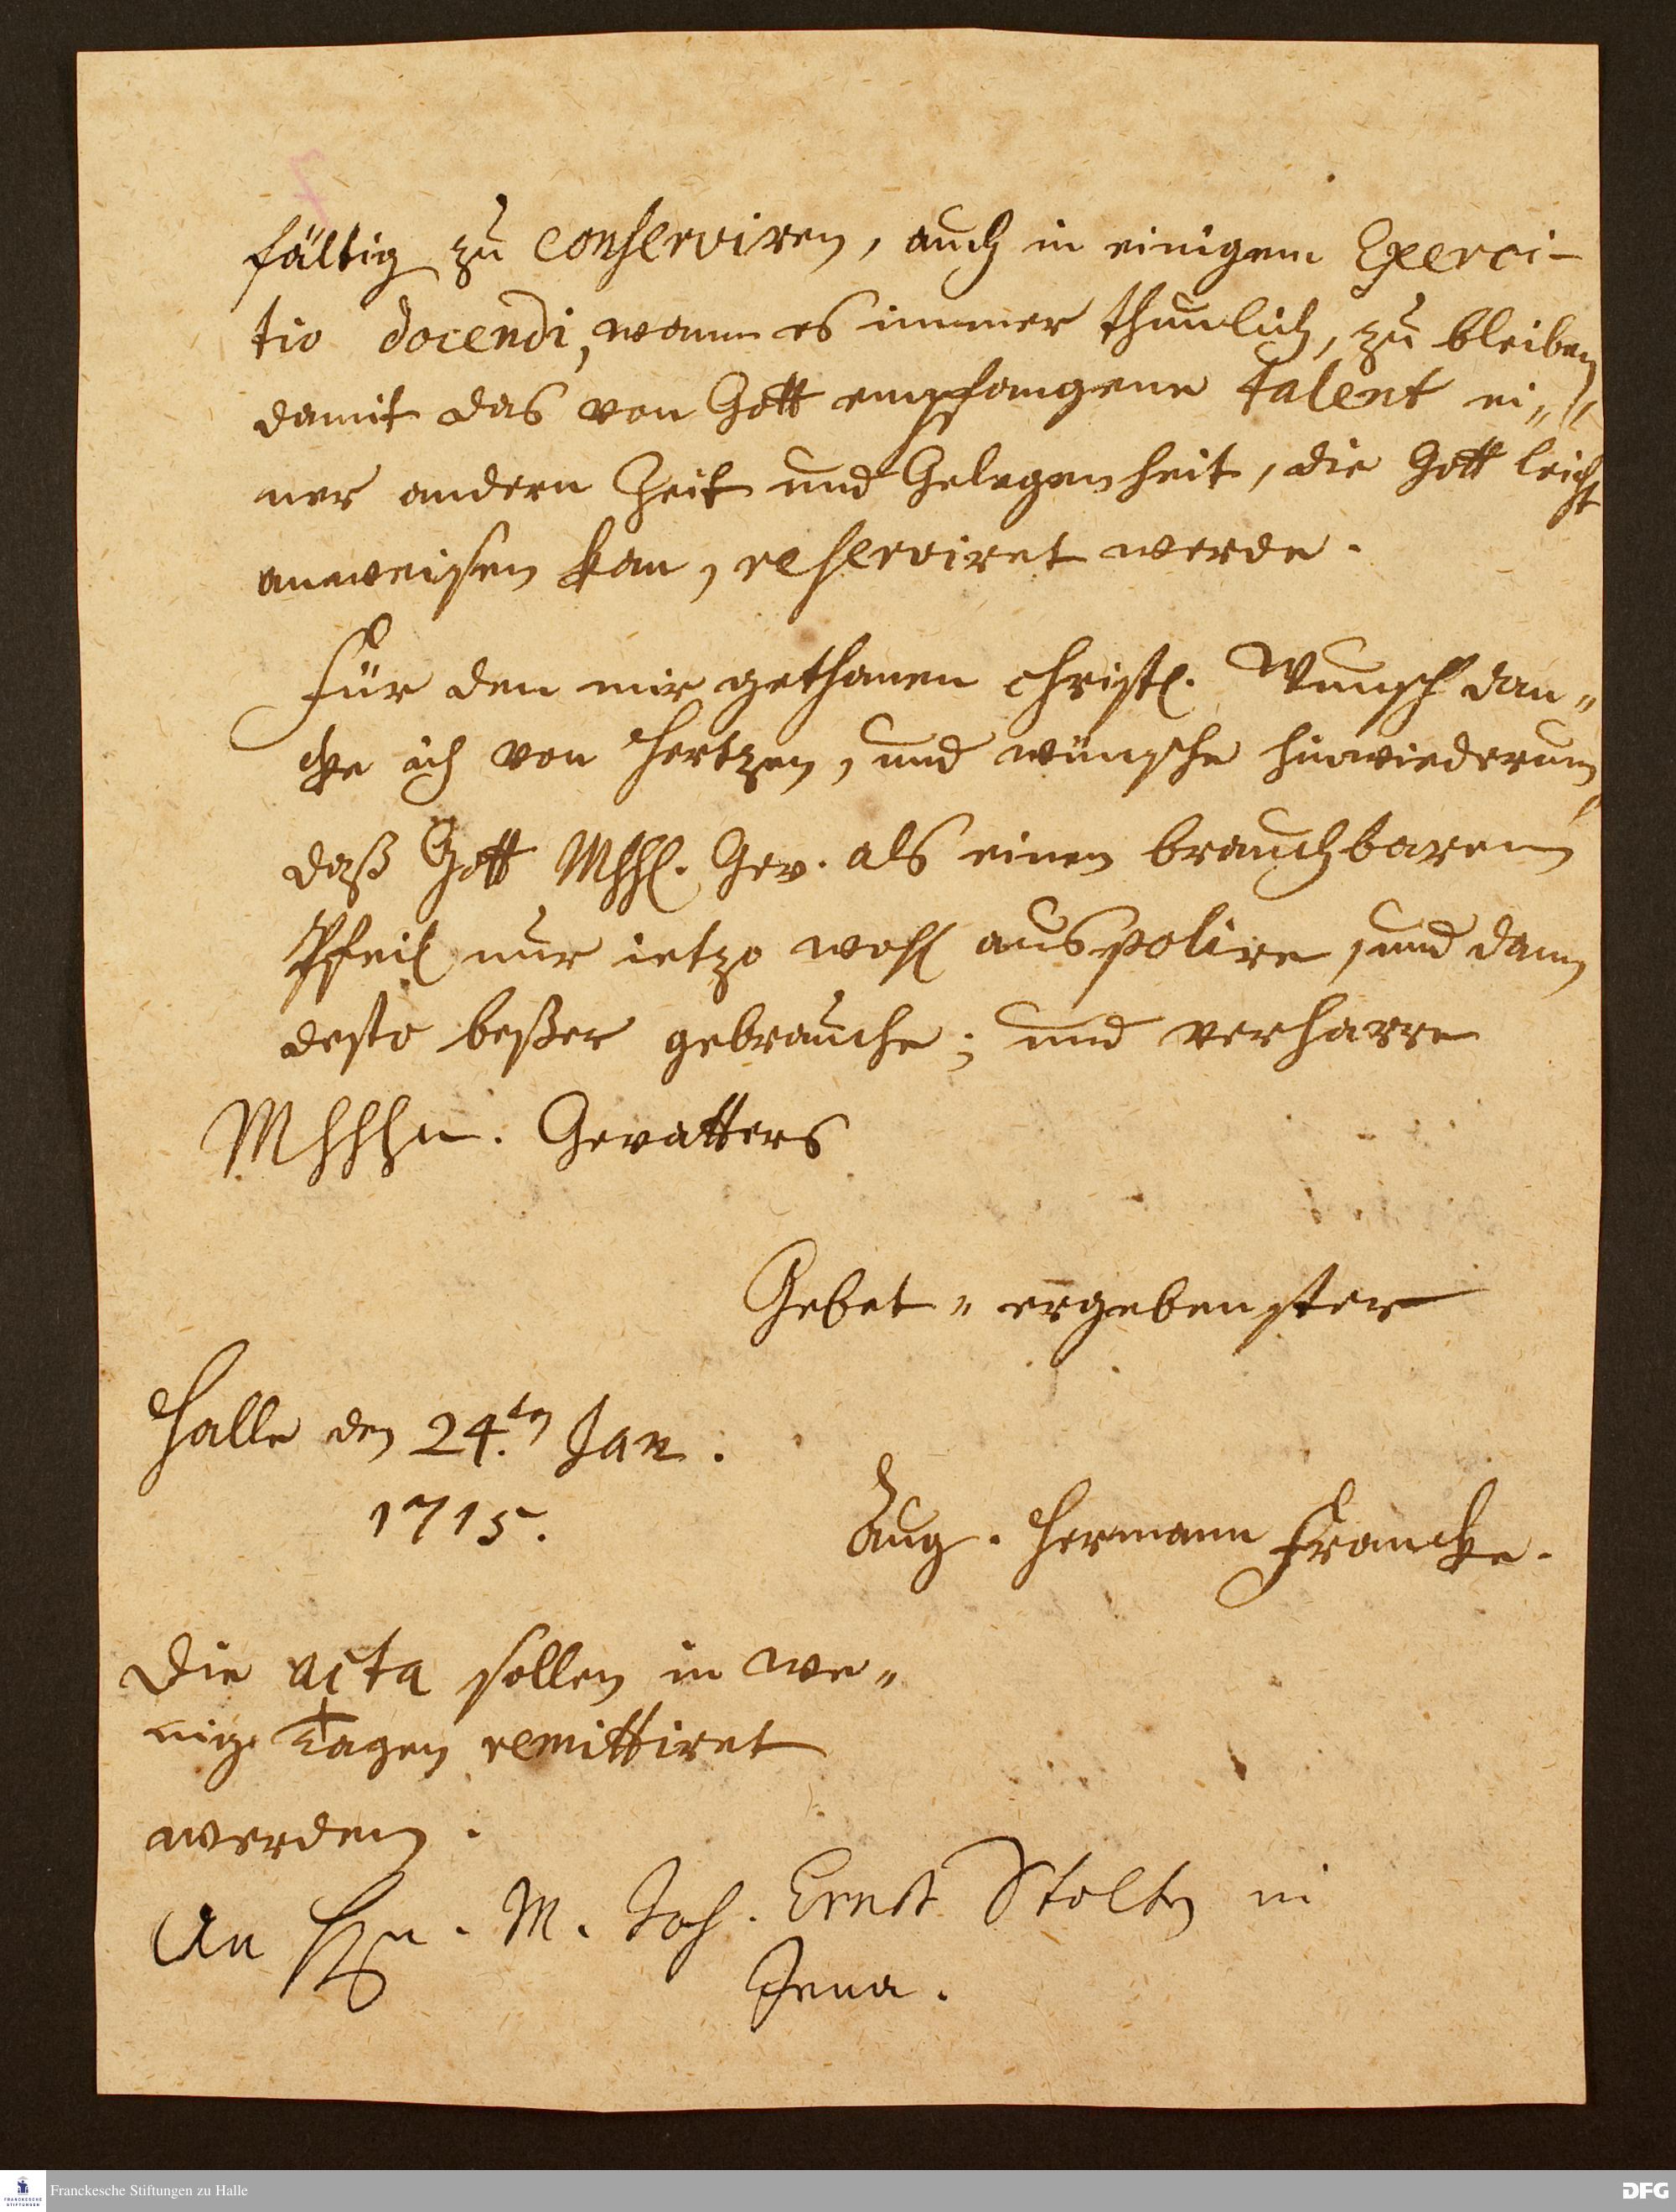 fältig zu conserviren, auch in einigem Exerci-
tio docendi, wann es immer thunlich, zu bleiben,
damit das von Gott empfangene talent ei„
ner andern Zeit und Gelegenheit, die Gott leicht
anweisen kan, reserviret werde.
Für den mir gethanen christl. Wunsch dan„
cke ich von Hertzen, und wünsche hinwiederum,
daß Gott Mhhl. Gev. als einen brauchbaren
Pfeil nur ietzo wohl auspolire, und dann
desto beßer gebrauche; und verharre
Mhhhn. Gevatters
Gebet„ergebenster
Halle den 24.ten Jan.
1715.
Aug. Hermann Francke.
Die acta sollen in we„
nig Tagen remittiret
werden.
An Hrn. M. Joh. Ernst Stoltz in
Jena.
Franckesche Stiftungen zu Halle
DFG